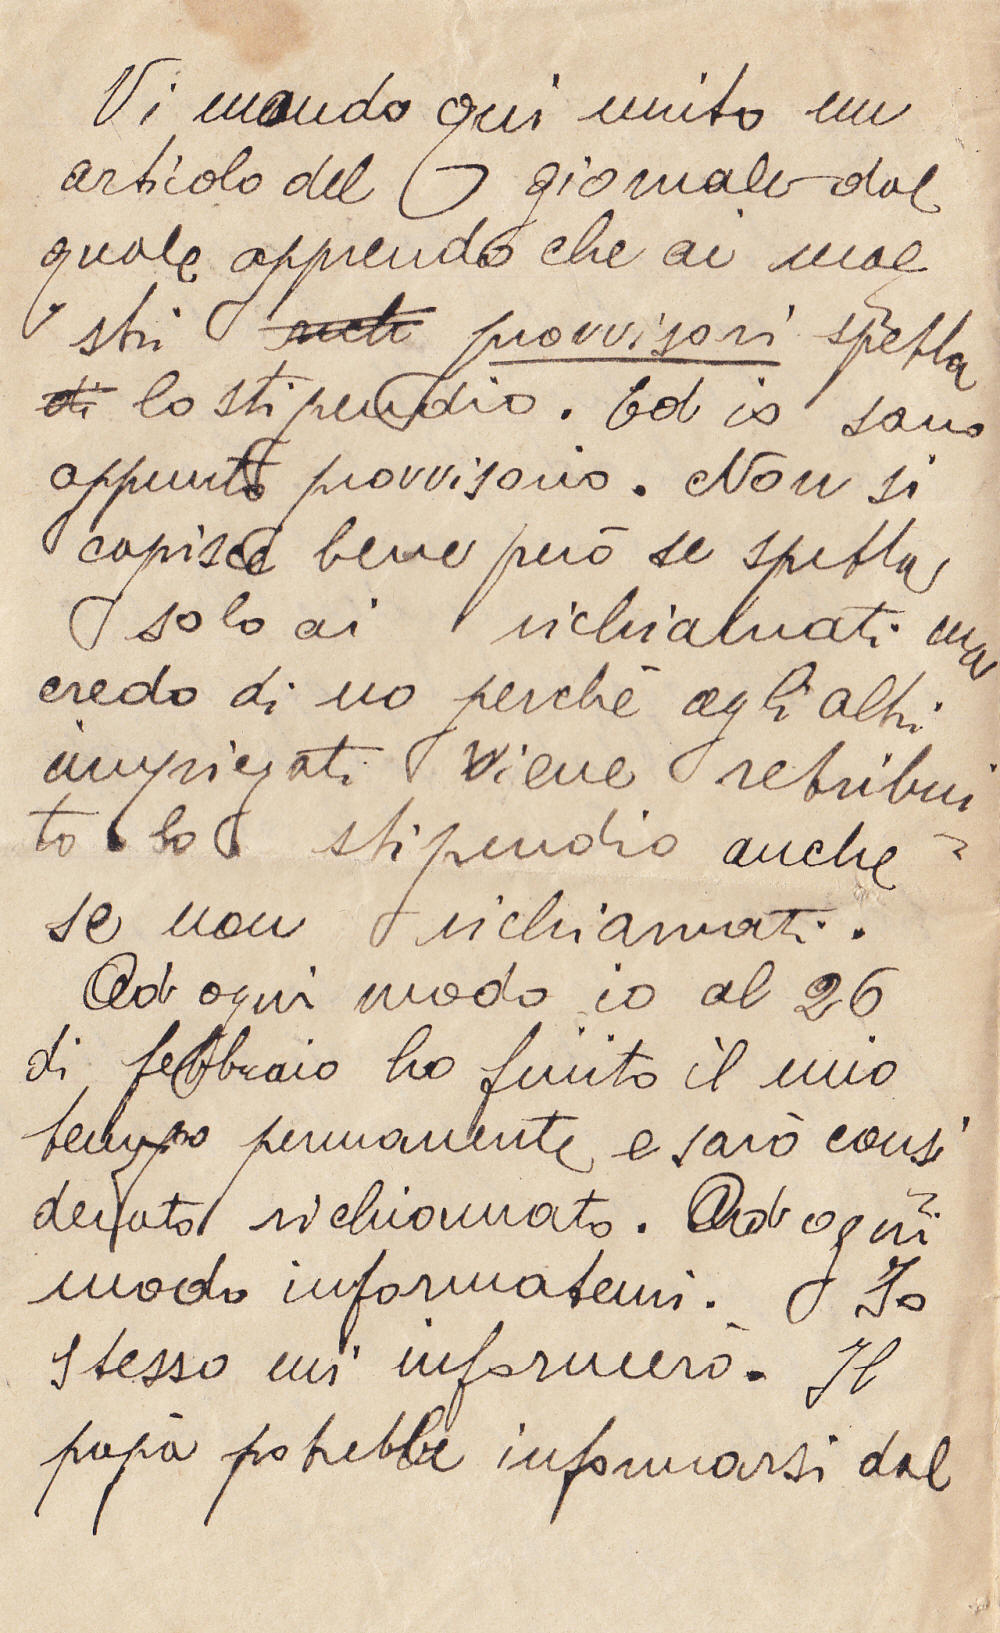 Vi mando qui unito un
articolo del giornale dal
quale apprendo che ai mae
stri provvisori spetta
di lo stipendio. Ed io sono
appunto provvisorio. Non si
capisce bene però se spetta
solo ai richiamati ma
credo di no perchè agli altri
impiegati viene retribui
to lo stipendio anche
se non richiamati.
Ad ogni modo io al 26
di febbraio ho finito il mio
tempo permanente e sarò consi
derato richiamato. Ad ogni
modo informatemi. Io
stesso mi informerò. Il
papà potrebbe informarsi dal